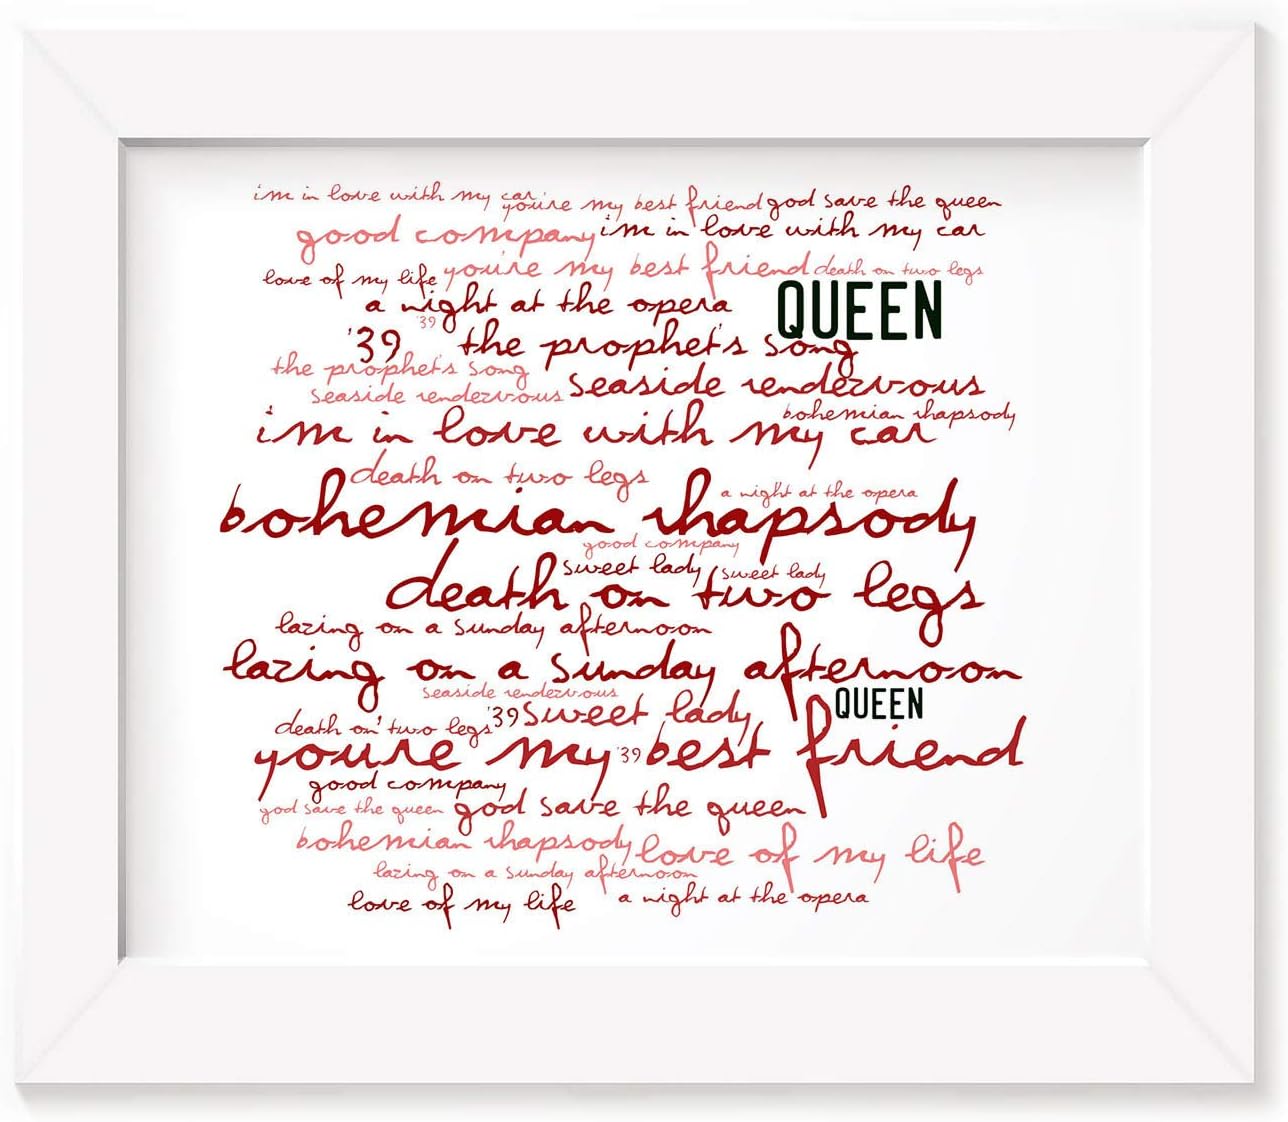 im in love with my car you're my best friend god save the queen
good company im in love with my car
love of my life you're my best friend death on two legs
a night at the opera QUEEN
'39
'39 the prophet's song
the prophet's song
seaside rendezvous seaside rendezvous
bohemian rhapsody
im in love with my car
death on two legs
a night at the opera
bohemian rhapsody
good company
sweet lady sweet lady
death on two legs
lazing on a sunday afternoon
lazing on a sunday afternoon
seaside rendezvous QUEEN
death on two legs '39 sweet lady
you're my '39 best friend
good company
god save the queen god save the queen
bohemian rhapsody love of my life
lazing on a sunday afternoon
love of my life a night at the opera